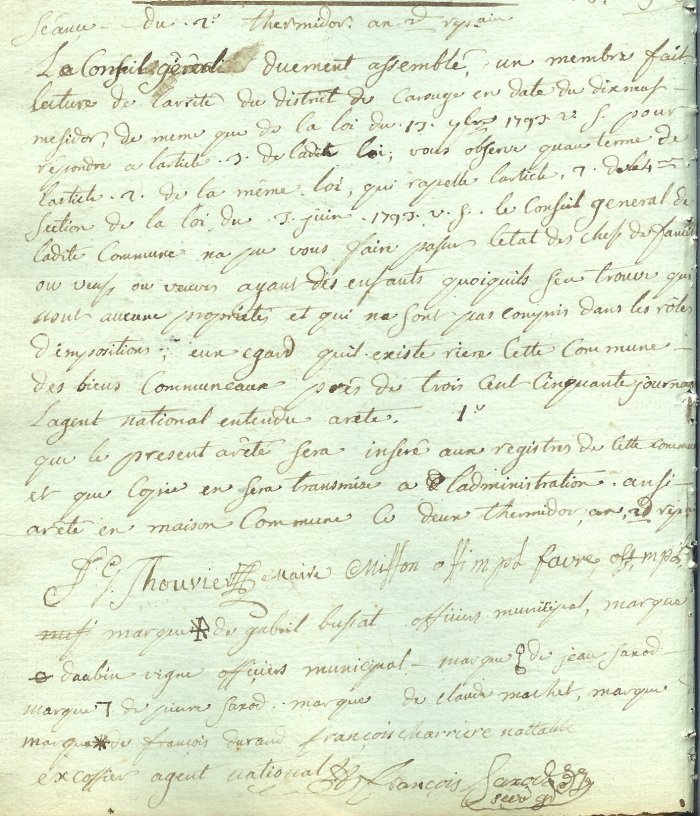 Séance du 2e thermidor an 2d repain
Le Conseil géneral duement assemblé, un membre fait
lecture de larrete du district de Carouge en date du dixneuf
mesidor, de meme que de la loi du 13. 7bre 1793. v. s. pour
repondre a larticle 3. de ladite loi, vous observe quau terme de
larticle 2. de la même loi, qui rapelle larticle 2. de la 4me
section de la loi du 3. juin 1793. v. s. le Conseil general de
ladite Commune na pu vous faire passer letat des chefs de famille
ou veufs ou veuves ayant des enfants quoiquils sen trouve qui
nont aucune propriétés et qui ne sont pas compris dans les rôles
d'impositions; eux egard quil existe riere Cette Commune
des biens Communeaux près de trois Cent Cinquante journaux
Lagent national entendu arete. 1e
que le present arêté sera inseré aux registres de Cette commune
et que Copie en sera transmise a ladministration ausi
arêté en maison Commune Ce deux thermidor, an 2d repain
J G Thouvier Maire Miffon off mpl favre, off, mpl,
marque de gabriel bussat officiers municipal, marque
daubin vigne officiers municipal marque de jean saxod
marque de pierre saxod. marque de claude machet, marque
marque de françois durand françois charriere nottable
excoffier agent national françois Saxod
secr gr